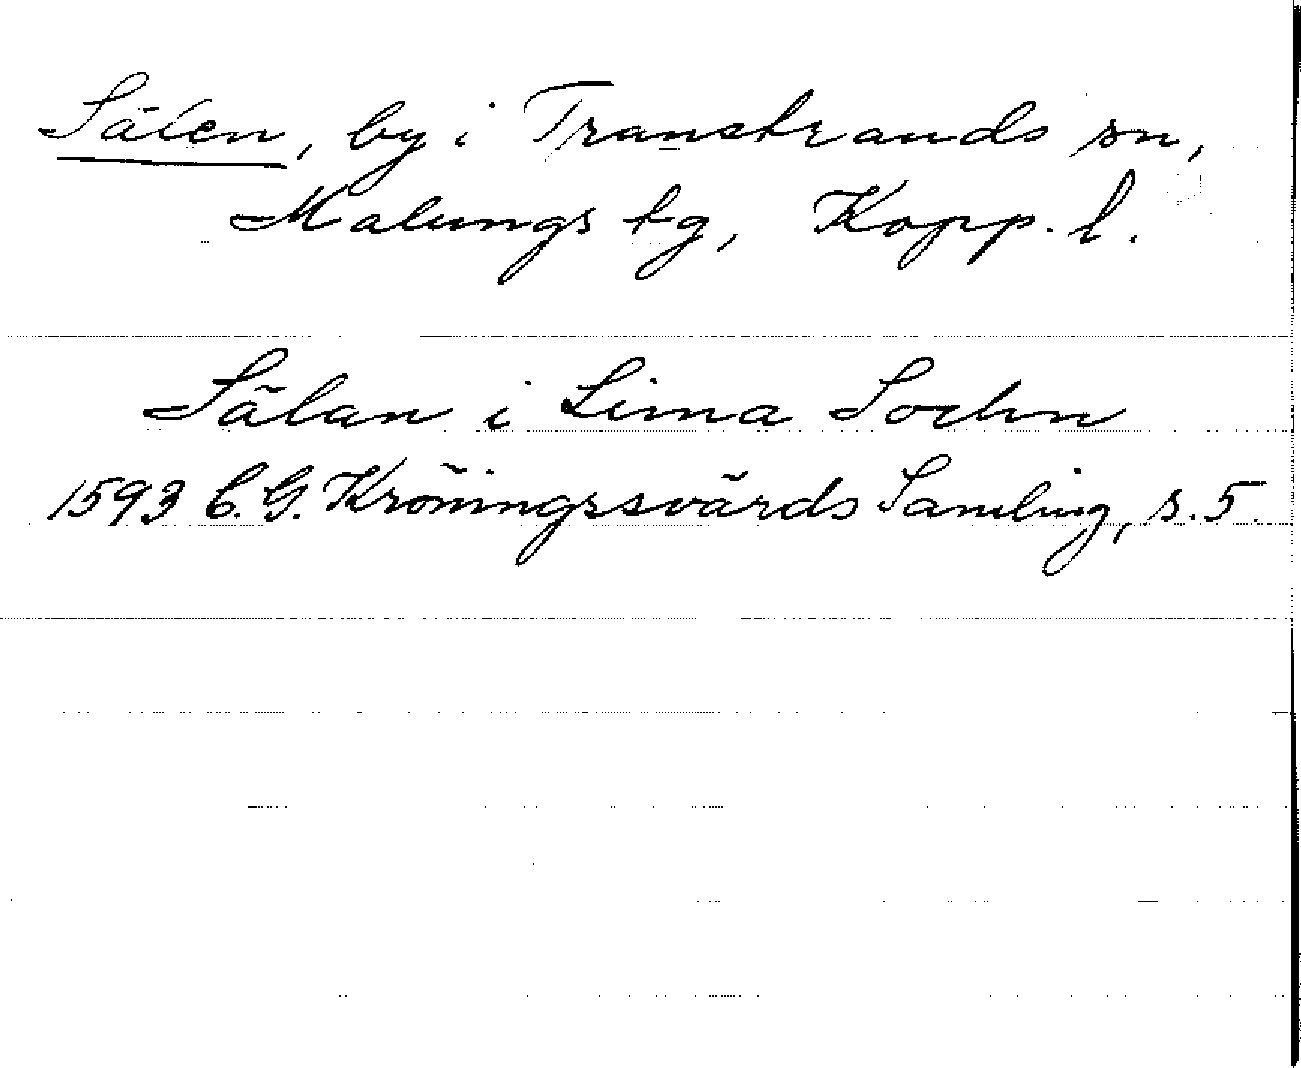 Sälen, by i Transtrands sn,
Malungs tg, Kopp. l.
Sälan i Lima Sochn
1593 C. G. Kröningssvärds Samling, s. 5.